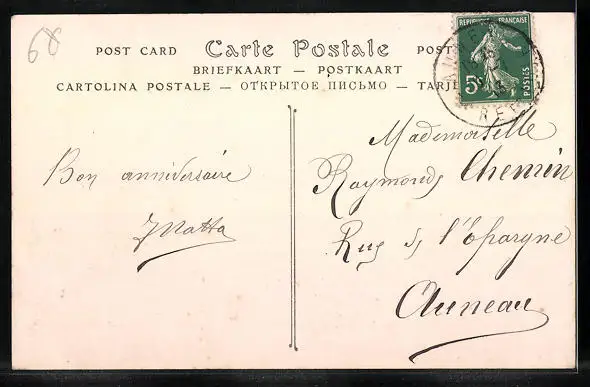 68
POST CARD Carte Postale POST
BRIEFKAART — POSTKAART
CARTOLINA POSTALE — ОТКРЫТОЕ ПИСЬМО — TARJE
REPUBLIQUE FRANÇAISE
5c
POSTES
Bon anniversaire
Mademoiselle
Raymonde Chemin
Rue de l'Epargne
Auneau